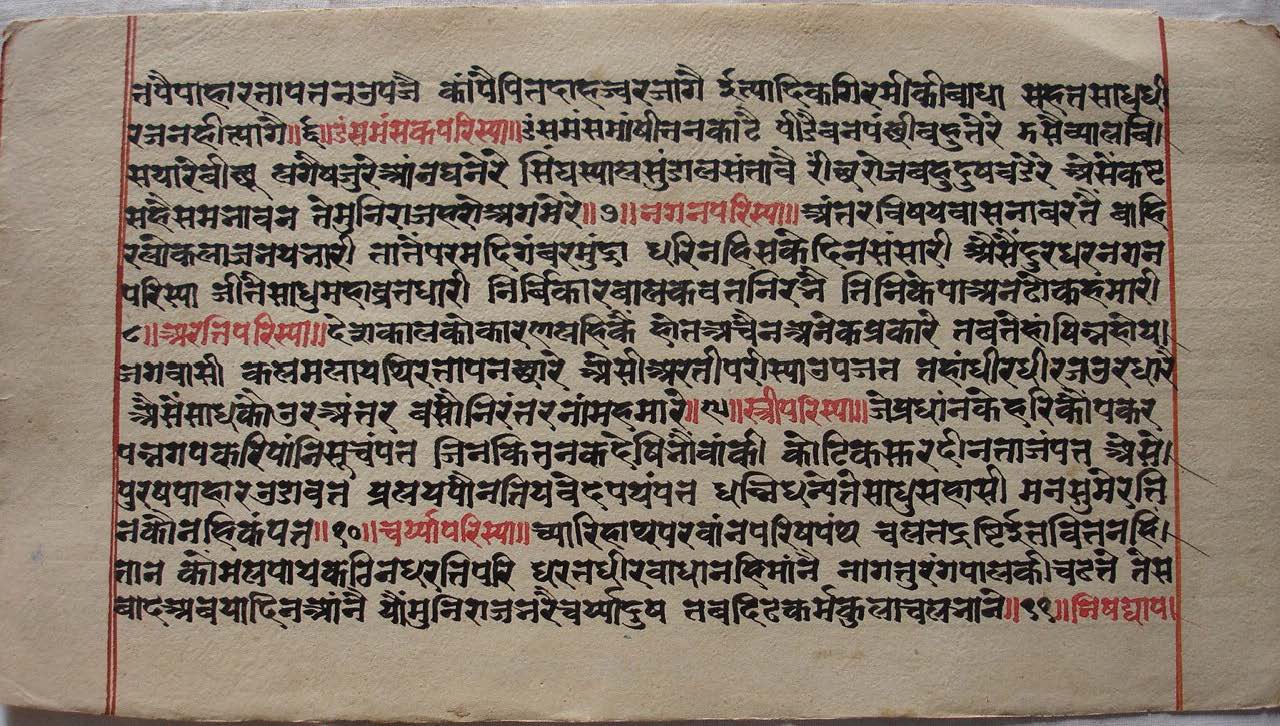 तपैपाहारतापतनउपजै कांपैपितदाहज्वरजागै ईत्यादिकगिरमीकीबाधा सहतसाधुधी
रजनहीत्यागै॥६॥डंसमंसकपरिस्या॥डंसमंसमांषीतनकाटै पीडैबनपंछीबहुतेरे डसैव्यालबि।
सयारेबीछू लगैषजुरेआंनघनेरे सिंघस्यालसुंडालसंतावै रीछरोजबहुदुषबडेरे अैसेंकष्ट
सहैसमनावन तेमुनिराजहरोअगमेरे॥७॥नगनपरिस्या॥अंतरबिषयबासनाबरतै बाहि
रलोकलाजनयनारी तातेंपरमदिगंबरमुंद्रा धरिनहिसकैदिनसंसारी अैसैंदुरधरनगन
परिस्या जीतैसाधुमहाब्रतधारी निर्बिकारबालकवतनिरनै तिनिकेपाअनढोकहमारी
८॥अरतिपरिस्या॥देशकालकोकारणलहिकैं होतअचैनअनेकप्रकारे तबतहांषिन्नहोय।
जगबासी कलमलाययिरतापनछारे अैसीअरतीपरीस्याउपजत तहांधीरधीरजउरधारै
अैसेंसाधकौउरअंतर बसौनिरंतरनांमहमारे॥९॥स्त्रीपरिस्या॥जेप्रधांनकेहरिकौपकर
पन्नगपकरिपांनिसूचंपत जिनकितनकदेषिभौबांकी कोटिकसूरदीनताजंपत अैसे।
पुरषपाहारउडावत प्रलयपौनतियबेदपयंपत धन्निधन्यतेसाधुसहासी मनसुमेरति
नकौनहिकंपत॥१०॥चर्य्यापरिस्या॥च्यारिहाथपरवांनपरिषपंथ चलतद्रष्टिईतवितनहिं।
तान कोमलपायकठिनधरतिपरि धरतधीरबाधानहिमांनै नागतुरंगपालकीचढते तेस
बादअवयादिनआंनै यौंमुनिराजनरैचर्य्यादुष तबदिढकर्मकुलाचलनाने॥११॥निषद्याप।